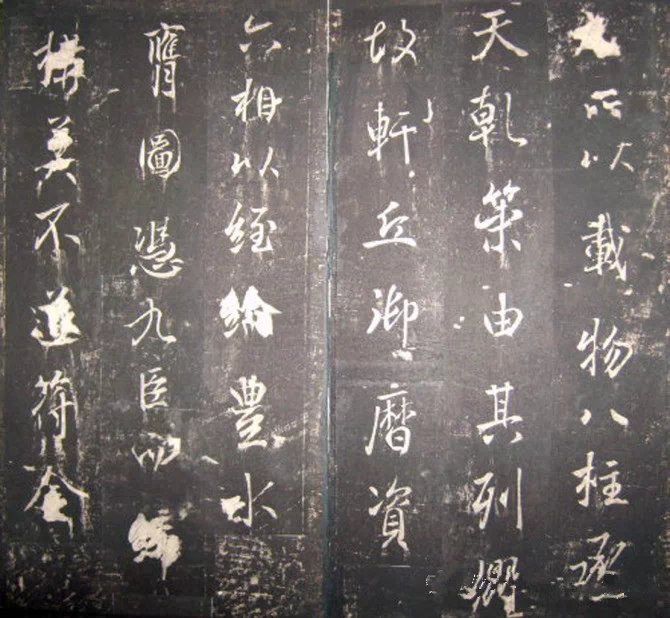 所以載物八柱承
天乾策由其列
故軒丘御曆資
六相以經綸豊水
膺圖憑九臣而締
構莫不道符金